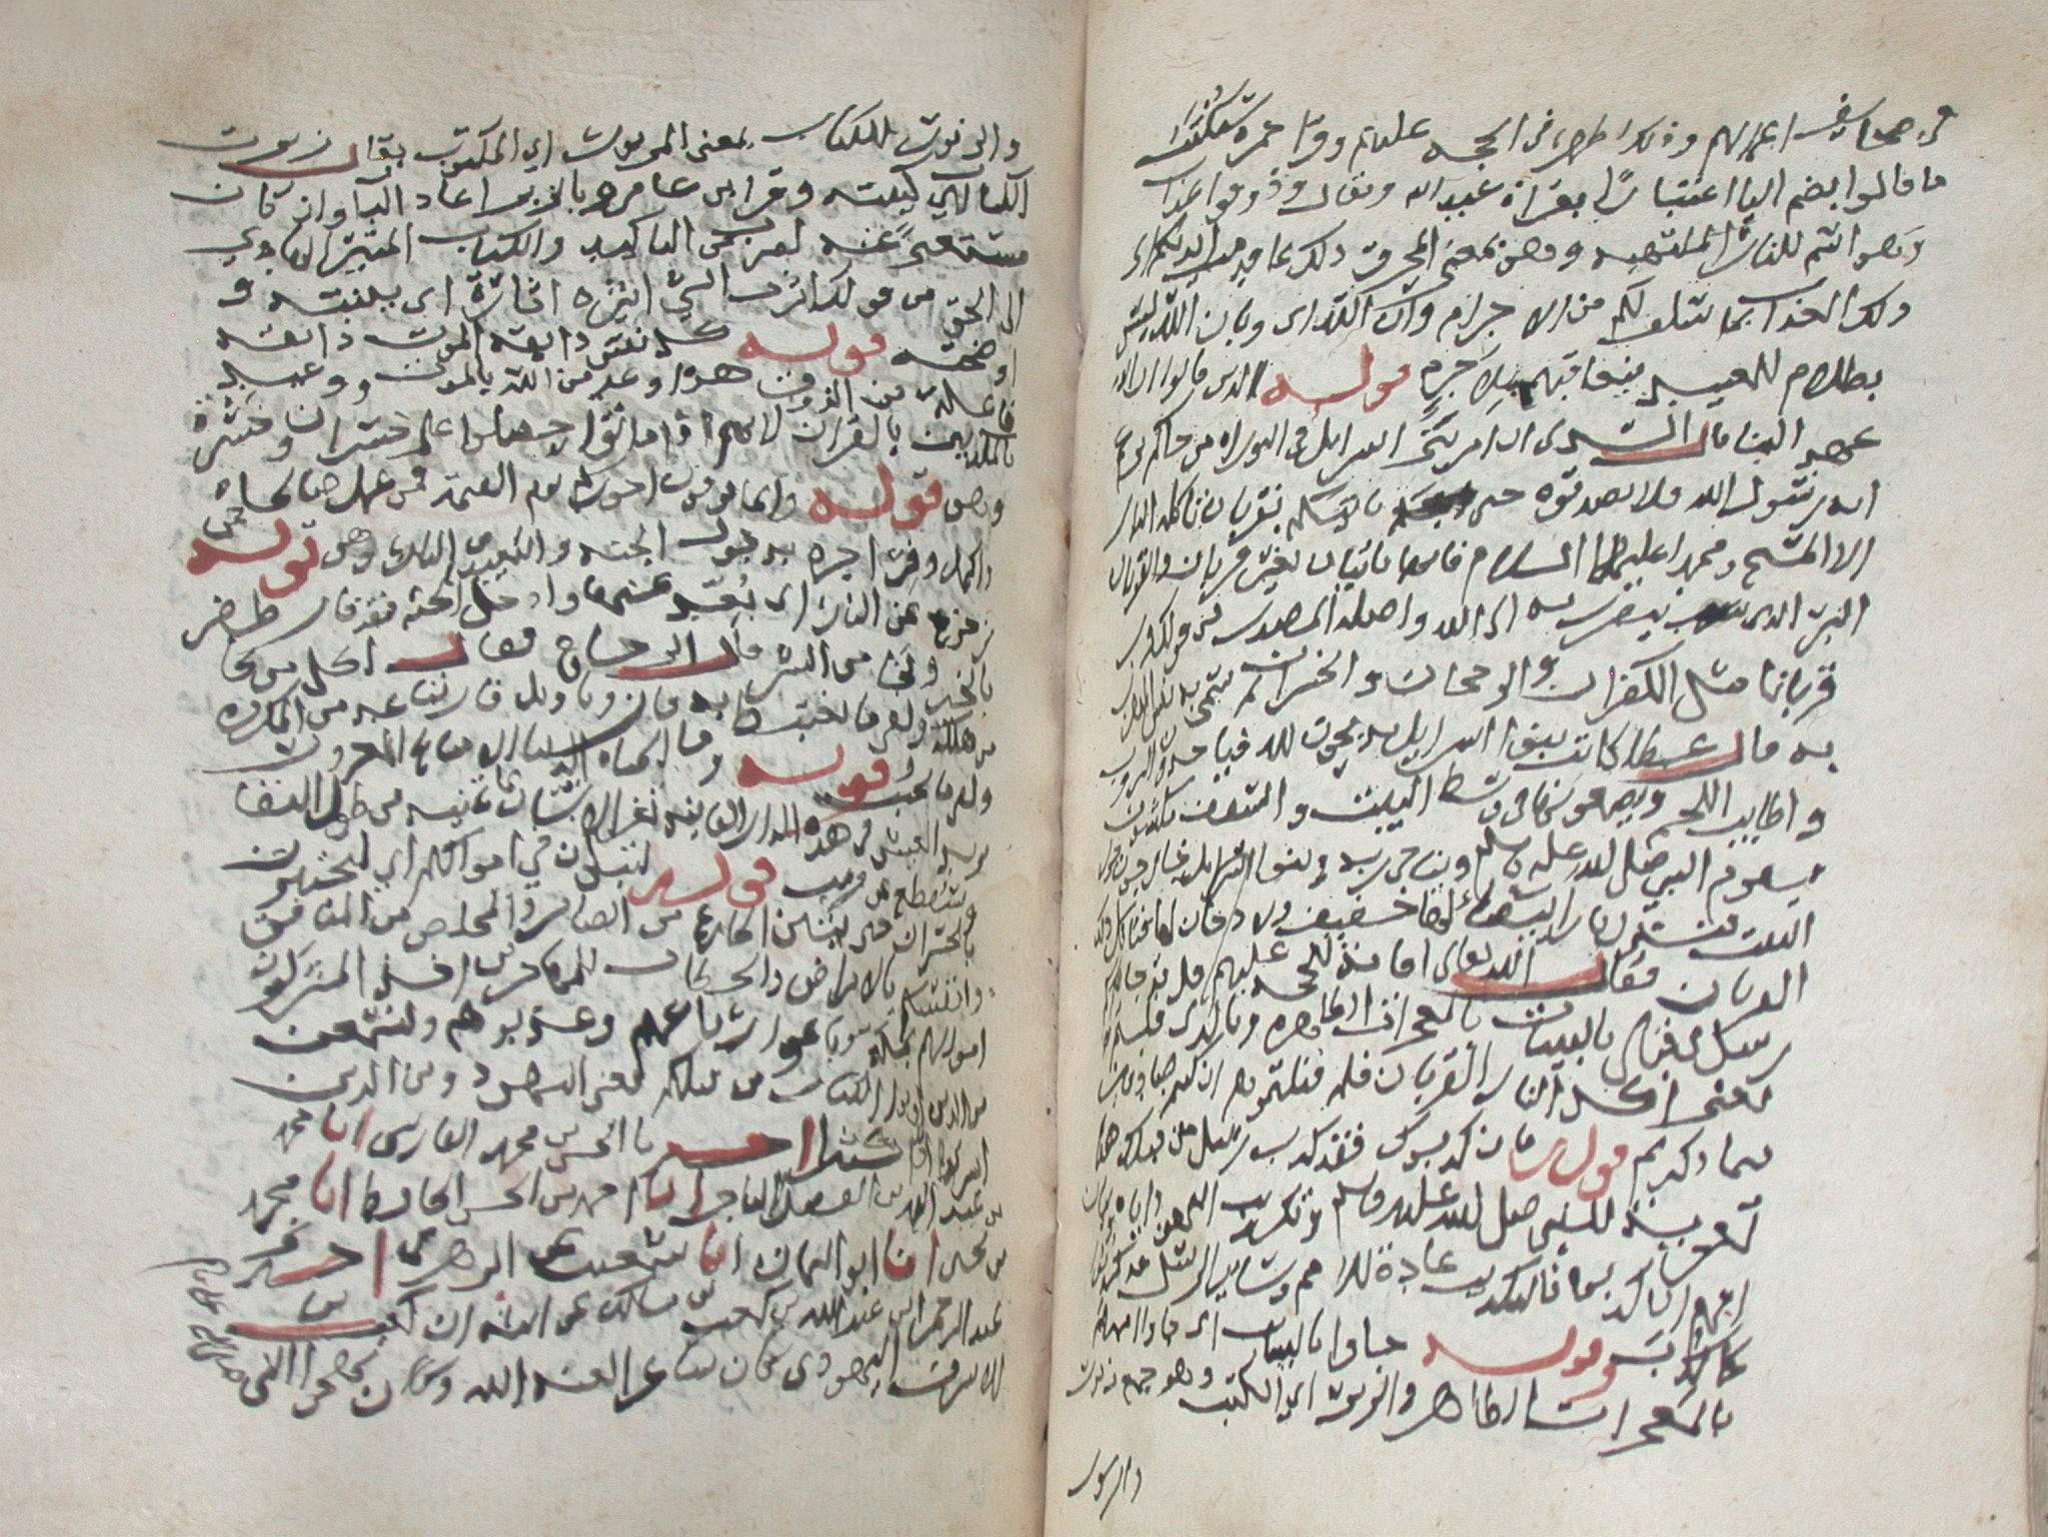 في صحائف اعمالهم وذلك اظهر في الحجه عليهم وقرا حمزه سيكتب
ما قالوا بضم اليا اعتبارا بقراة عبد الله ويقال ذوقوا عذاب
الحريق
ذلك العذاب بما سلف لكم من الاجرام وان الله اى وبان الله ليس
بظلام للعبيد فيعاقبهم بلا جرم قوله الذين قالوا ان الله
عهد الينا قال السدى ان الله امر بنى اسرائل فى التوراه من جاكم يزعم
انه رسول الله فلا تصدقوه حتى ياتيكم بقربان تاكله النار
الا المسيح ومحمدا عليهما السلام فانهما ياتيان بغير قربان والقربان
البر الذى يتقرب به الى الله واصله المصدر من قولك قرب
قربانا مثل الكفران والرجحان والخسران ثم سمى به نفس المتقرب
به قال عطا كانت بنوا اسرايل يذبحون لله فياخذون الثروب
واطايب اللحم ويضعونها فى وسط البيت والسقف مكشوف
فيقوم النبى صلى الله عليه وسلم ويناجى ربه وبنوا اسرايل خارجون حول
البيت فتنزل نار بيضاء لها حفيف ولا دخان لها فتاكل ذلك
القربان فقال الله تعالى اقامة للحجه عليهم قل قد جاكم
رسل من قبلى بالبينات بالمعجزات الظاهره وبالذى قلتم
يعنى اكل النار القربان فلم قتلتموهم ان كنتم صادقين
بما ذكرتم قوله فان كذبوك فقد كذب رسل من قبلك هذا
تعزية للنبى صلى الله عليه وسلم وتكذيب اليهود اياه
عادة للامم وساير الرسل قد كذبوا
كما كذبت وقوله جاوا بالبينات اى جاوا اممهم
بالمعجزات الظاهره والزبر اى الكتب وهو جمع زبور
والزبور
والزبور الكتاب بمعنى المزبور اى المكتوب يقال زبرت
الكتاب اى كتبته وقرا ابن عامر وبالزبر اعاد البا وان كان
مستغنى عنه لضرب من التاكيد والكتاب المنير الهادي
الى الحق من قولك انرت الشى انيره انارة اى بينته و
اوضحته قوله كل نفس ذايقه الموت ذايقه
فاعله من الذوق هذا وعد من الله بالموت ووعيد
للمكذبين بالقران لانهم اذا ماتوا حصلوا على خسران وحسرة
وهو قوله وانما توفون اجوركم يوم القيمة فمن عمل صالحا
واكمل وفى اجره به دخول الجنه والبعد من النار وهو قوله فمن
زحزح عن النار اى بعد عنها وادخل الجنه فقد فاز ظفر
بالخير ونجا من الشر قال الزجاج يقال لكل من نجا
من هلكه ولقى ما يغتبط به فاز وتاويل فاز تباعد من المكروه
ولقى ما يحب وقوله وما الحياه الدنيا الا متاع الغرور
يريد العيش فى هذه الدار الفانيه يغر الانسان بما يمنيه من طول البقا
وسينقطع عن قريب قوله لتبلون في اموالكم اي لتختبرن
بالخسران حتى يتبين الجازع من الصابر والمخلص من المنافق
وانفسكم بالامراض والحطاب للمهاجرين اخذ المشركون
اموالهم بمكه وباعوا رباعهم وعذبوهم ولتسمعن
من الذين اوتوا الكتاب من قبلكم يعنى اليهود ومن الذين
اشركوا اخبرنا ابو الحسن محمد الفارسى انا محمد
بن عبد الله بن الفضل التاجر انا احمد بن الحسن الحافظ انا محمد
بن يحيى انا ابو اليمان انا شعيب عن الزهرى اخبرني
عبد الرحمن بن عبد الله بن كعب بن مالك عن ابيه ان كعب بن
الاشرف اليهودى كان شاعرا لعنه الله وكان يهجوا النبى صلى الله عليه وسلم